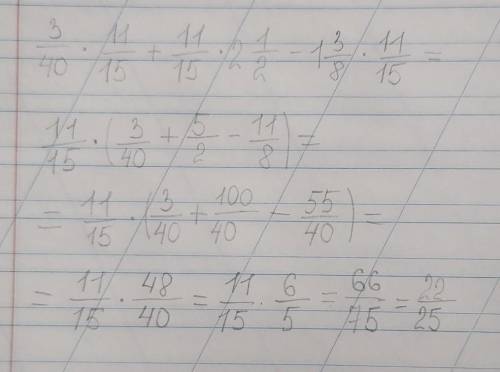 3/40 · 11/15 + 11/15 · 2 1/2 - 1 3/8 · 11/15 =
11/15 · (3/40 + 5/2 - 11/8) =
= 11/15 · (3/40 + 100/40 - 55/40) =
= 11/15 · 48/40 = 11/15 · 6/5 = 66/75 = 22/25